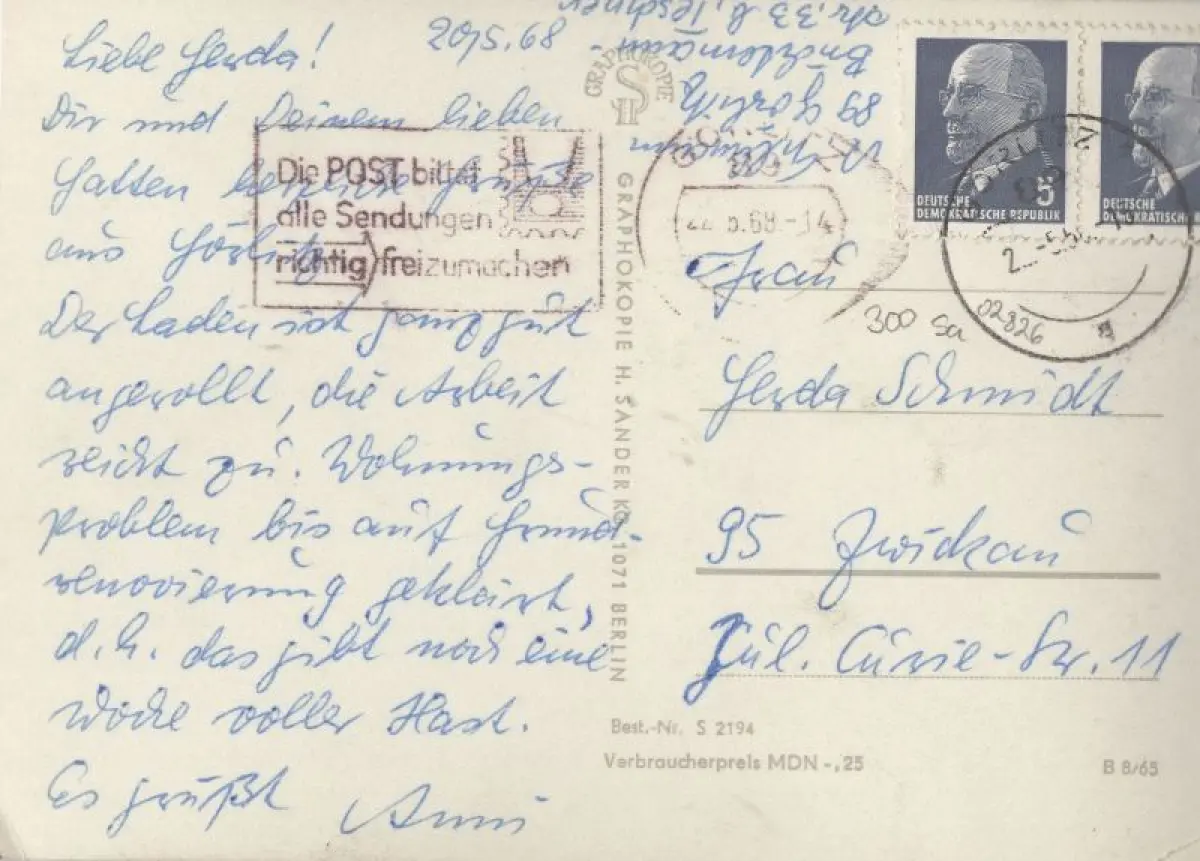 Liebe Gerda! 20/5.68
Dir und Deinem lieben
Gatten herzliche Grüße
aus Görlitz.
Der Laden ist ganz gut
angerollt, die Arbeit
reicht zu. Wohnungs-
problem bis auf Grund-
renovierung geklärt,
d.h. das gibt noch eine
Woche voller Hast.
Es grüßt Anni
Die POST bittet
alle Sendungen
richtig freizumachen
89 Görlitz
str. 33 b. Teschner
GRAPHOKOPIE
GRAPHOKOPIE H. SANDER KG 1071 BERLIN
GÖRLITZ
22.5.68.-14
DEUTSCHE
DEMOKRATISCHE REPUBLIK
5
DEUTSCHE
DEMOKRATISCHE
300 Sa
02826
Frau
Gerda Schmidt
95 Zwickau
Jul. Curie-Str. 11
Best.-Nr. S 2194
Verbraucherpreis MDN -,25
B 8/65